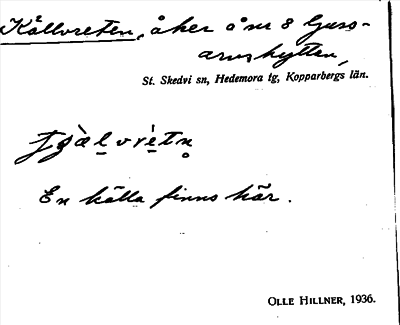 Källvreten, åker å nr 8 Ljus-
arnshytten,
St. Skedvi sn, Hedemora tg, Kopparbergs län.
En källa finns här.
OLLE HILLNER, 1936.